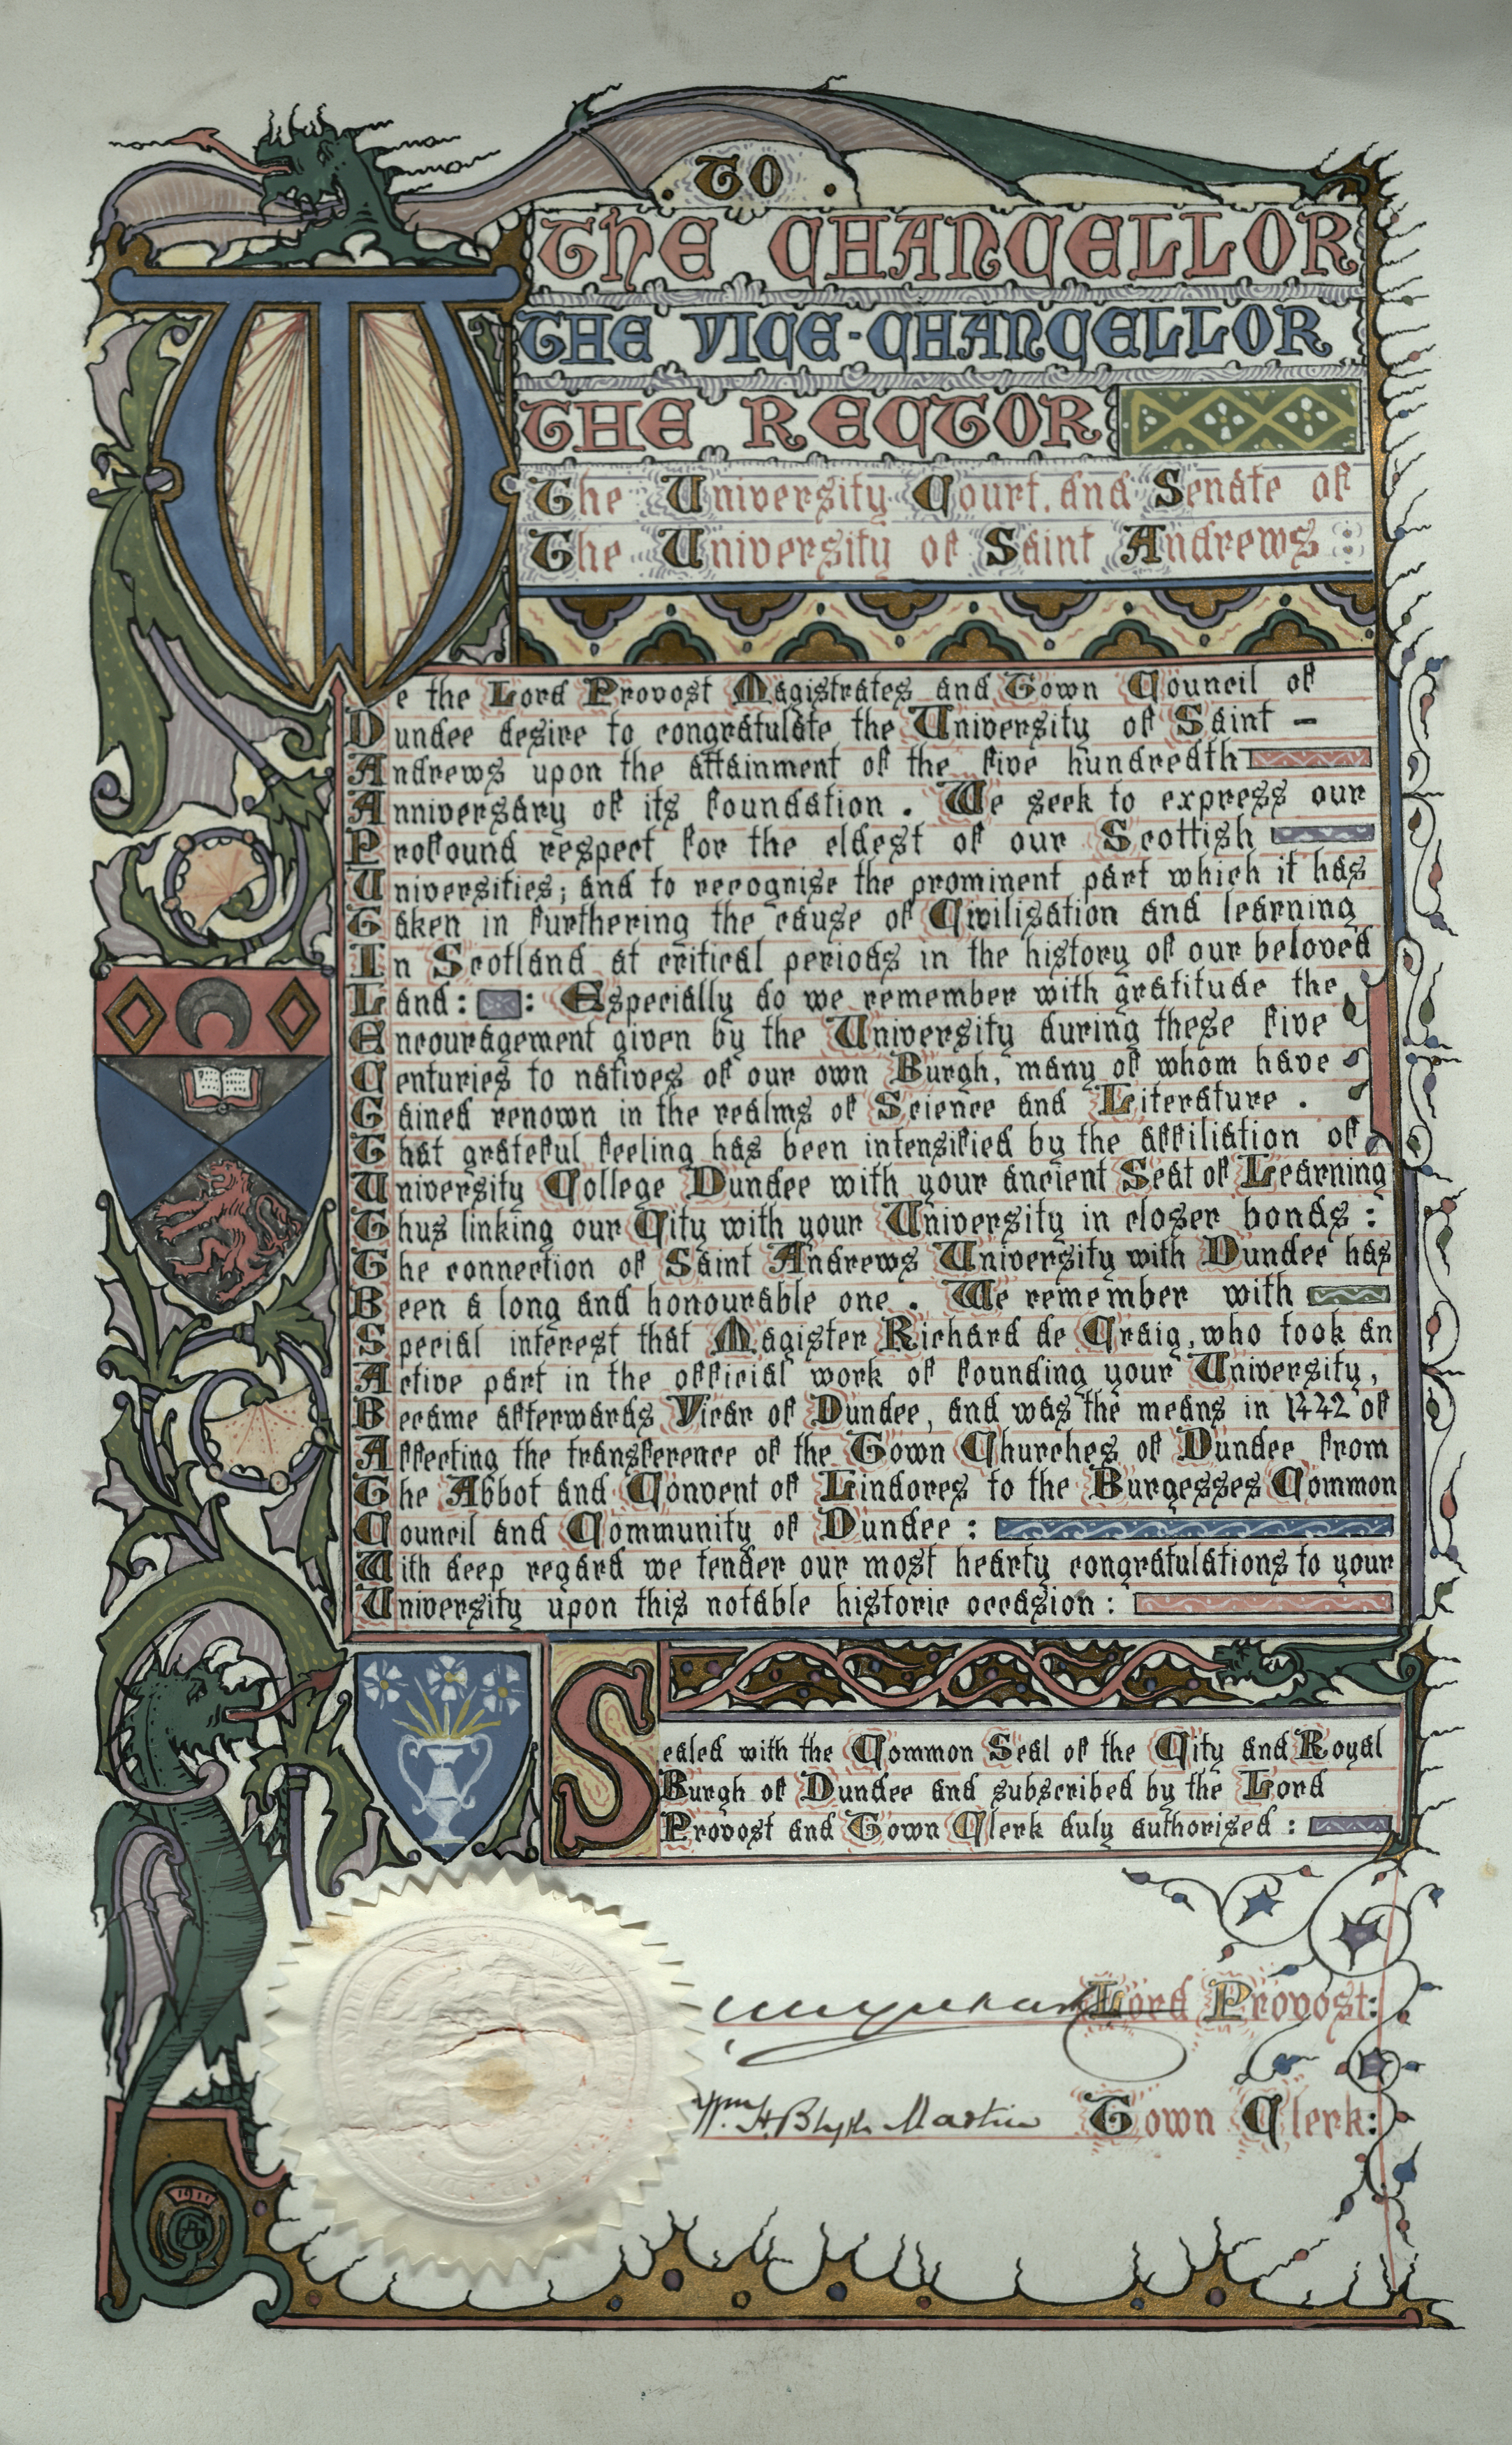 TO
THE CHANCELLOR
THE VICE-CHANCELLOR
THE RECTOR
The University Court, and Senate of
The University of Saint Andrews
We the Lord Provost Magistrates and Town Council of
Dundee desire to congratulate the University of Saint -
Andrews upon the attainment of the five hundredth
Anniversary of its foundation. We seek to express our
Profound respect for the eldest of our Scottish
Universities; and to recognise the prominent part which it has
Taken in furthering the cause of Civilisation and learning
In Scotland at critical periods in the history of our beloved
Land: : Especially do we remember with gratitude the
Encouragement given by the University during these five
Centuries to natives of our own Burgh, many of whom have
Gained renown in the realms of Science and Literature.
That grateful feeling has been intensified by the affiliation of
University College Dundee with your ancient Seat of Learning
Thus linking our City with your University in closer bonds:
The connection of Saint Andrews University with Dundee has
Been a long and honourable one. We remember with
Special interest that Magister Richard de Craig, who took an
Active part in the official work of founding your University,
Became afterwards Vicar of Dundee, and was the means in 1442 of
Affecting the transference of the Town Churches of Dundee from
The Abbot and Convent of Lindores to the Burgesses Common
Council and Community of Dundee:
With deep regard we tender our most hearty congratulations to your
University upon this notable historic occasion:
Sealed with the Common Seal of the City and Royal
Burgh of Dundee and subscribed by the Lord
Provost and Town Clerk duly authorised:
Lord Provost:
Wm. H. Blyth Martin Town Clerk:
1911